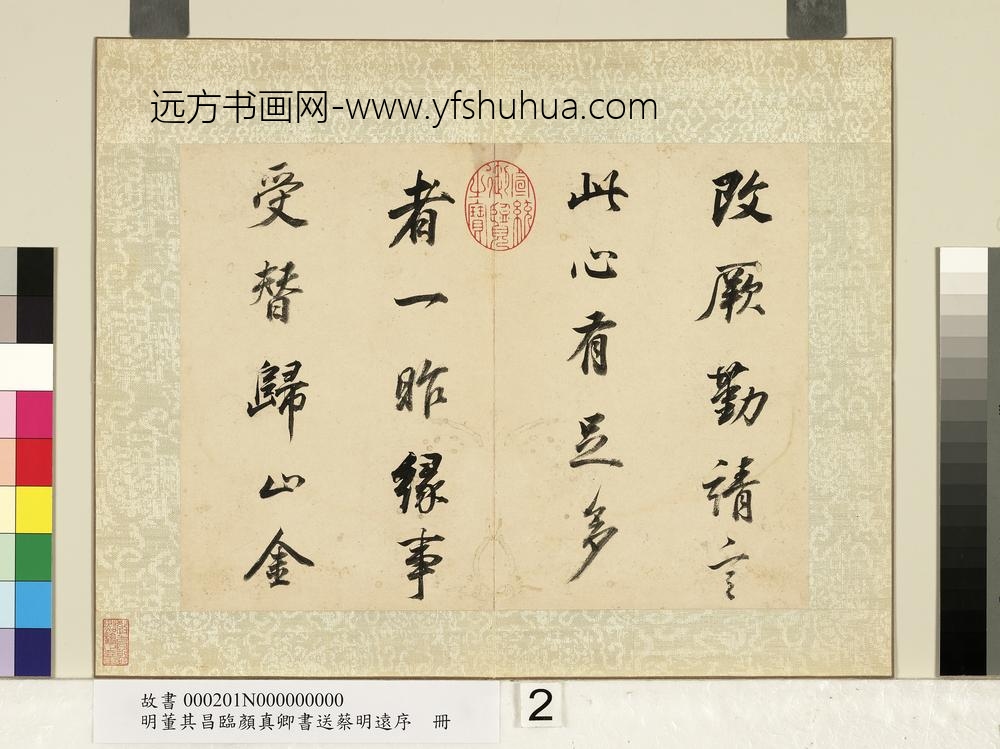 远方书画网-www.yfshuhua.com
改厥勤靖言
此心有足多
者一昨緣事
受替歸山金
宣統御覽之寶
故書 000201N000000000
明董其昌臨顏真卿書送蔡明遠序 冊
2